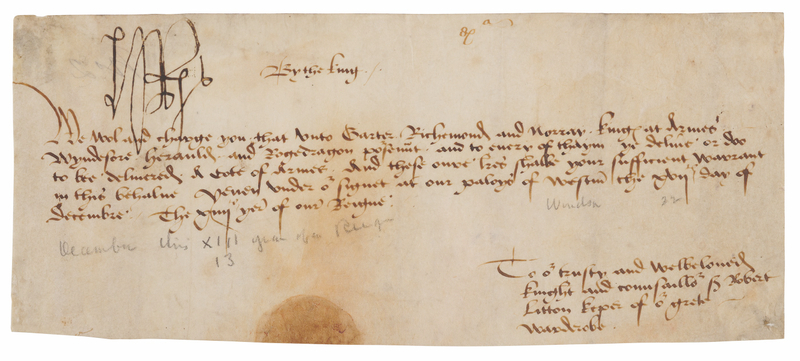 By the king
We wol and charge you that unto Garter Richemond and Norray kinges at Armes
Wyndesore herauld and Rogedragon pursevant and to every of thaym ye deliver or doo
to bee delivered a cote of Armes And these oure lres shalbe your sufficient warrant
in this behalve Yeven under or signet at our paloys of Westm the xvij day of
decembre The xiij yer of our Reigne
Windsor 22
December this XIII year of our Reign
13
To or trusty and welbeloved
knight and counsaillor Sr Robert
Litton keper of or grete
Warderobe